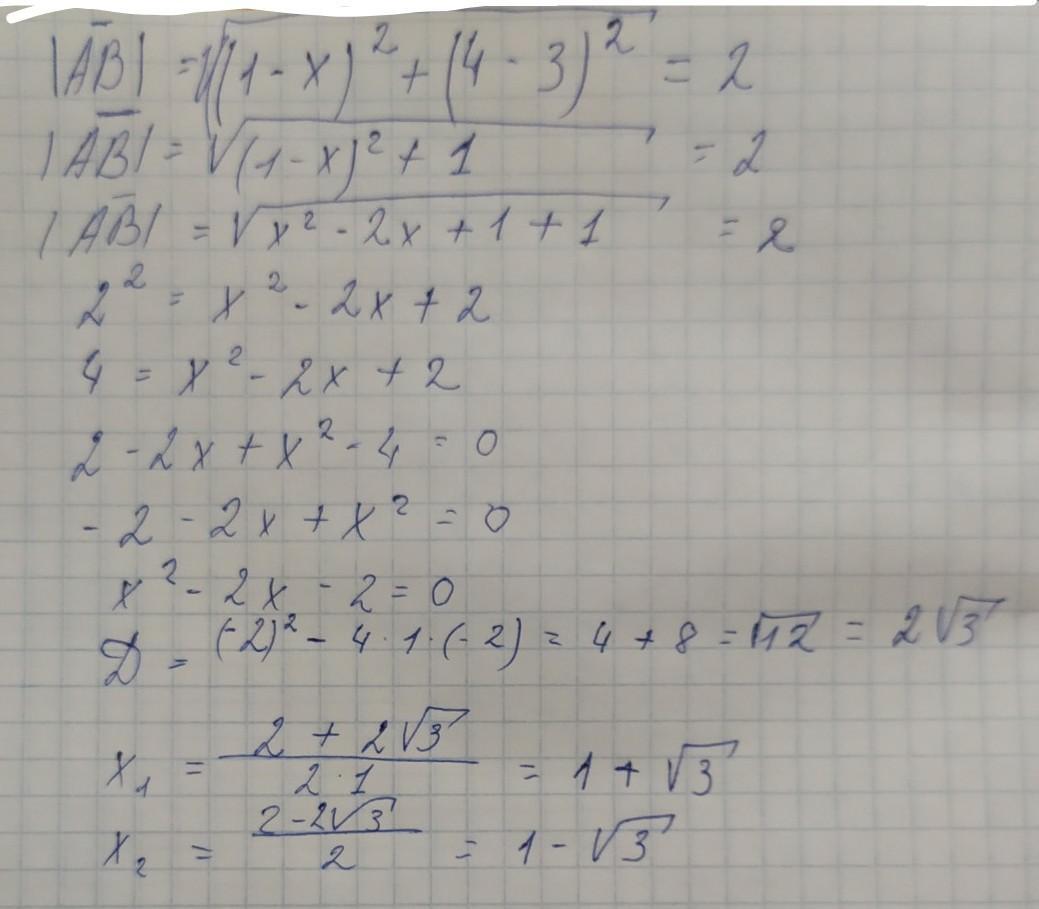 |AB| = √((1-x)² + (4-3)²) = 2
|AB| = √((1-x)² + 1) = 2
|AB| = √(x² - 2x + 1 + 1) = 2
2² = x² - 2x + 2
4 = x² - 2x + 2
2 - 2x + x² - 4 = 0
-2 - 2x + x² = 0
x² - 2x - 2 = 0
D = (-2)² - 4·1·(-2) = 4 + 8 = √12 = 2√3
x₁ = (2 + 2√3)/(2·1) = 1 + √3
x₂ = (2-2√3)/2 = 1 - √3